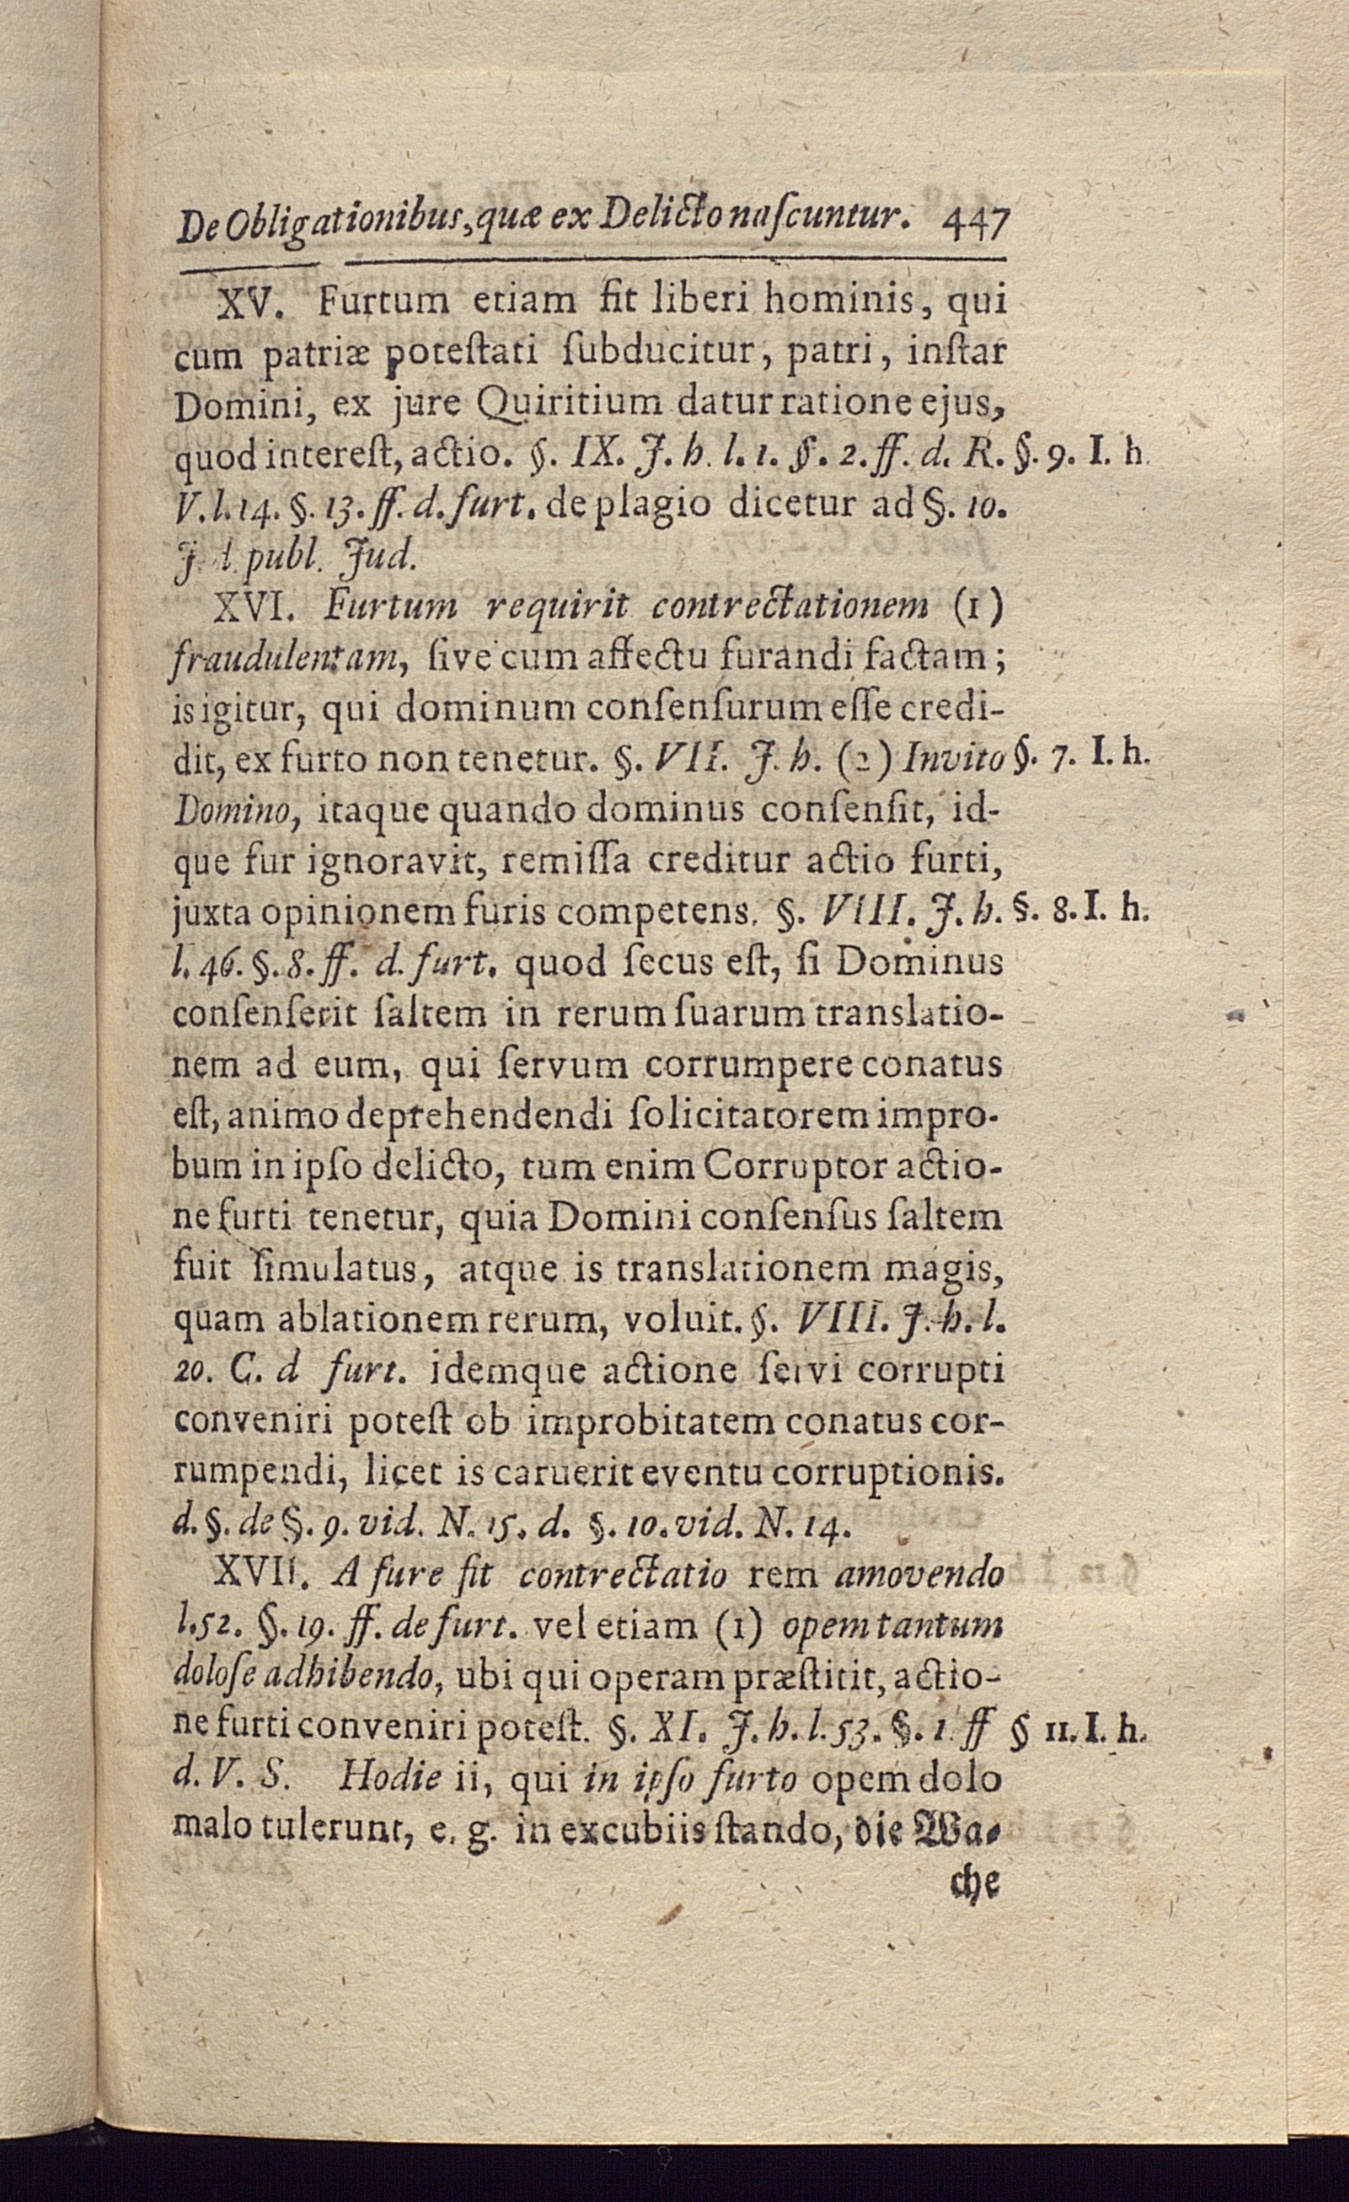 De Obligationibus, quæ ex Delicto naſcuntur. 447
XV. Furtum etiam fit liberi hominis, qui
cum patriæ poteſtati ſubducitur, patri, inſtar
Domini, ex jure Quiritium datur ratione ejus,
quod intereſt, actio. §. IX. J. h. l. 1. §. 2. ff. d. R. §. 9. I. h.
V. l. 14. §. 13. ff. d. furt. de plagio dicetur ad §. 10.
J. d. publ. Jud.
XVI. Furtum requirit contrectationem (1)
fraudulentam, ſive cum affectu furandi factam;
is igitur, qui dominum conſenſurum eſſe credi-
dit, ex furto non tenetur. §. VII. J. h. (2) Invito §. 7. I. h.
Domino, itaque quando dominus conſenſit, id-
que fur ignoravit, remiſſa creditur actio furti,
juxta opinionem furis competens. §. VIII. J. h. §. 8. I. h.
l. 46. §. 8. ff. d. furt. quod ſecus eſt, ſi Dominus
conſenſerit ſaltem in rerum ſuarum translatio-
nem ad eum, qui ſervum corrumpere conatus
eſt, animo deprehendendi ſolicitatorem impro-
bum in ipſo delicto, tum enim Corruptor actio-
ne furti tenetur, quia Domini conſenſus ſaltem
fuit ſimulatus, atque is translationem magis,
quam ablationem rerum, voluit. §. VIII. J. h. l.
20. C. d furt. idemque actione ſervi corrupti
conveniri poteſt ob improbitatem conatus cor-
rumpendi, licet is caruerit eventu corruptionis.
d. §. de §. 9. vid. N. 15. d. §. 10. vid. N. 14.
XVII. A fure fit contrectatio rem amovendo
l. 52. §. 19. ff. de furt. vel etiam (1) opem tantum
doloſe adhibendo, ubi qui operam præſtitit, actio-
ne furti conveniri poteſt. §. XI. J. h. l. 53. §. 1 ff § 11. I. h.
d. V. S. Hodie ii, qui in ipſo furto opem dolo
malo tulerunt, e. g. in excubiis ſtando, die Wa-
che